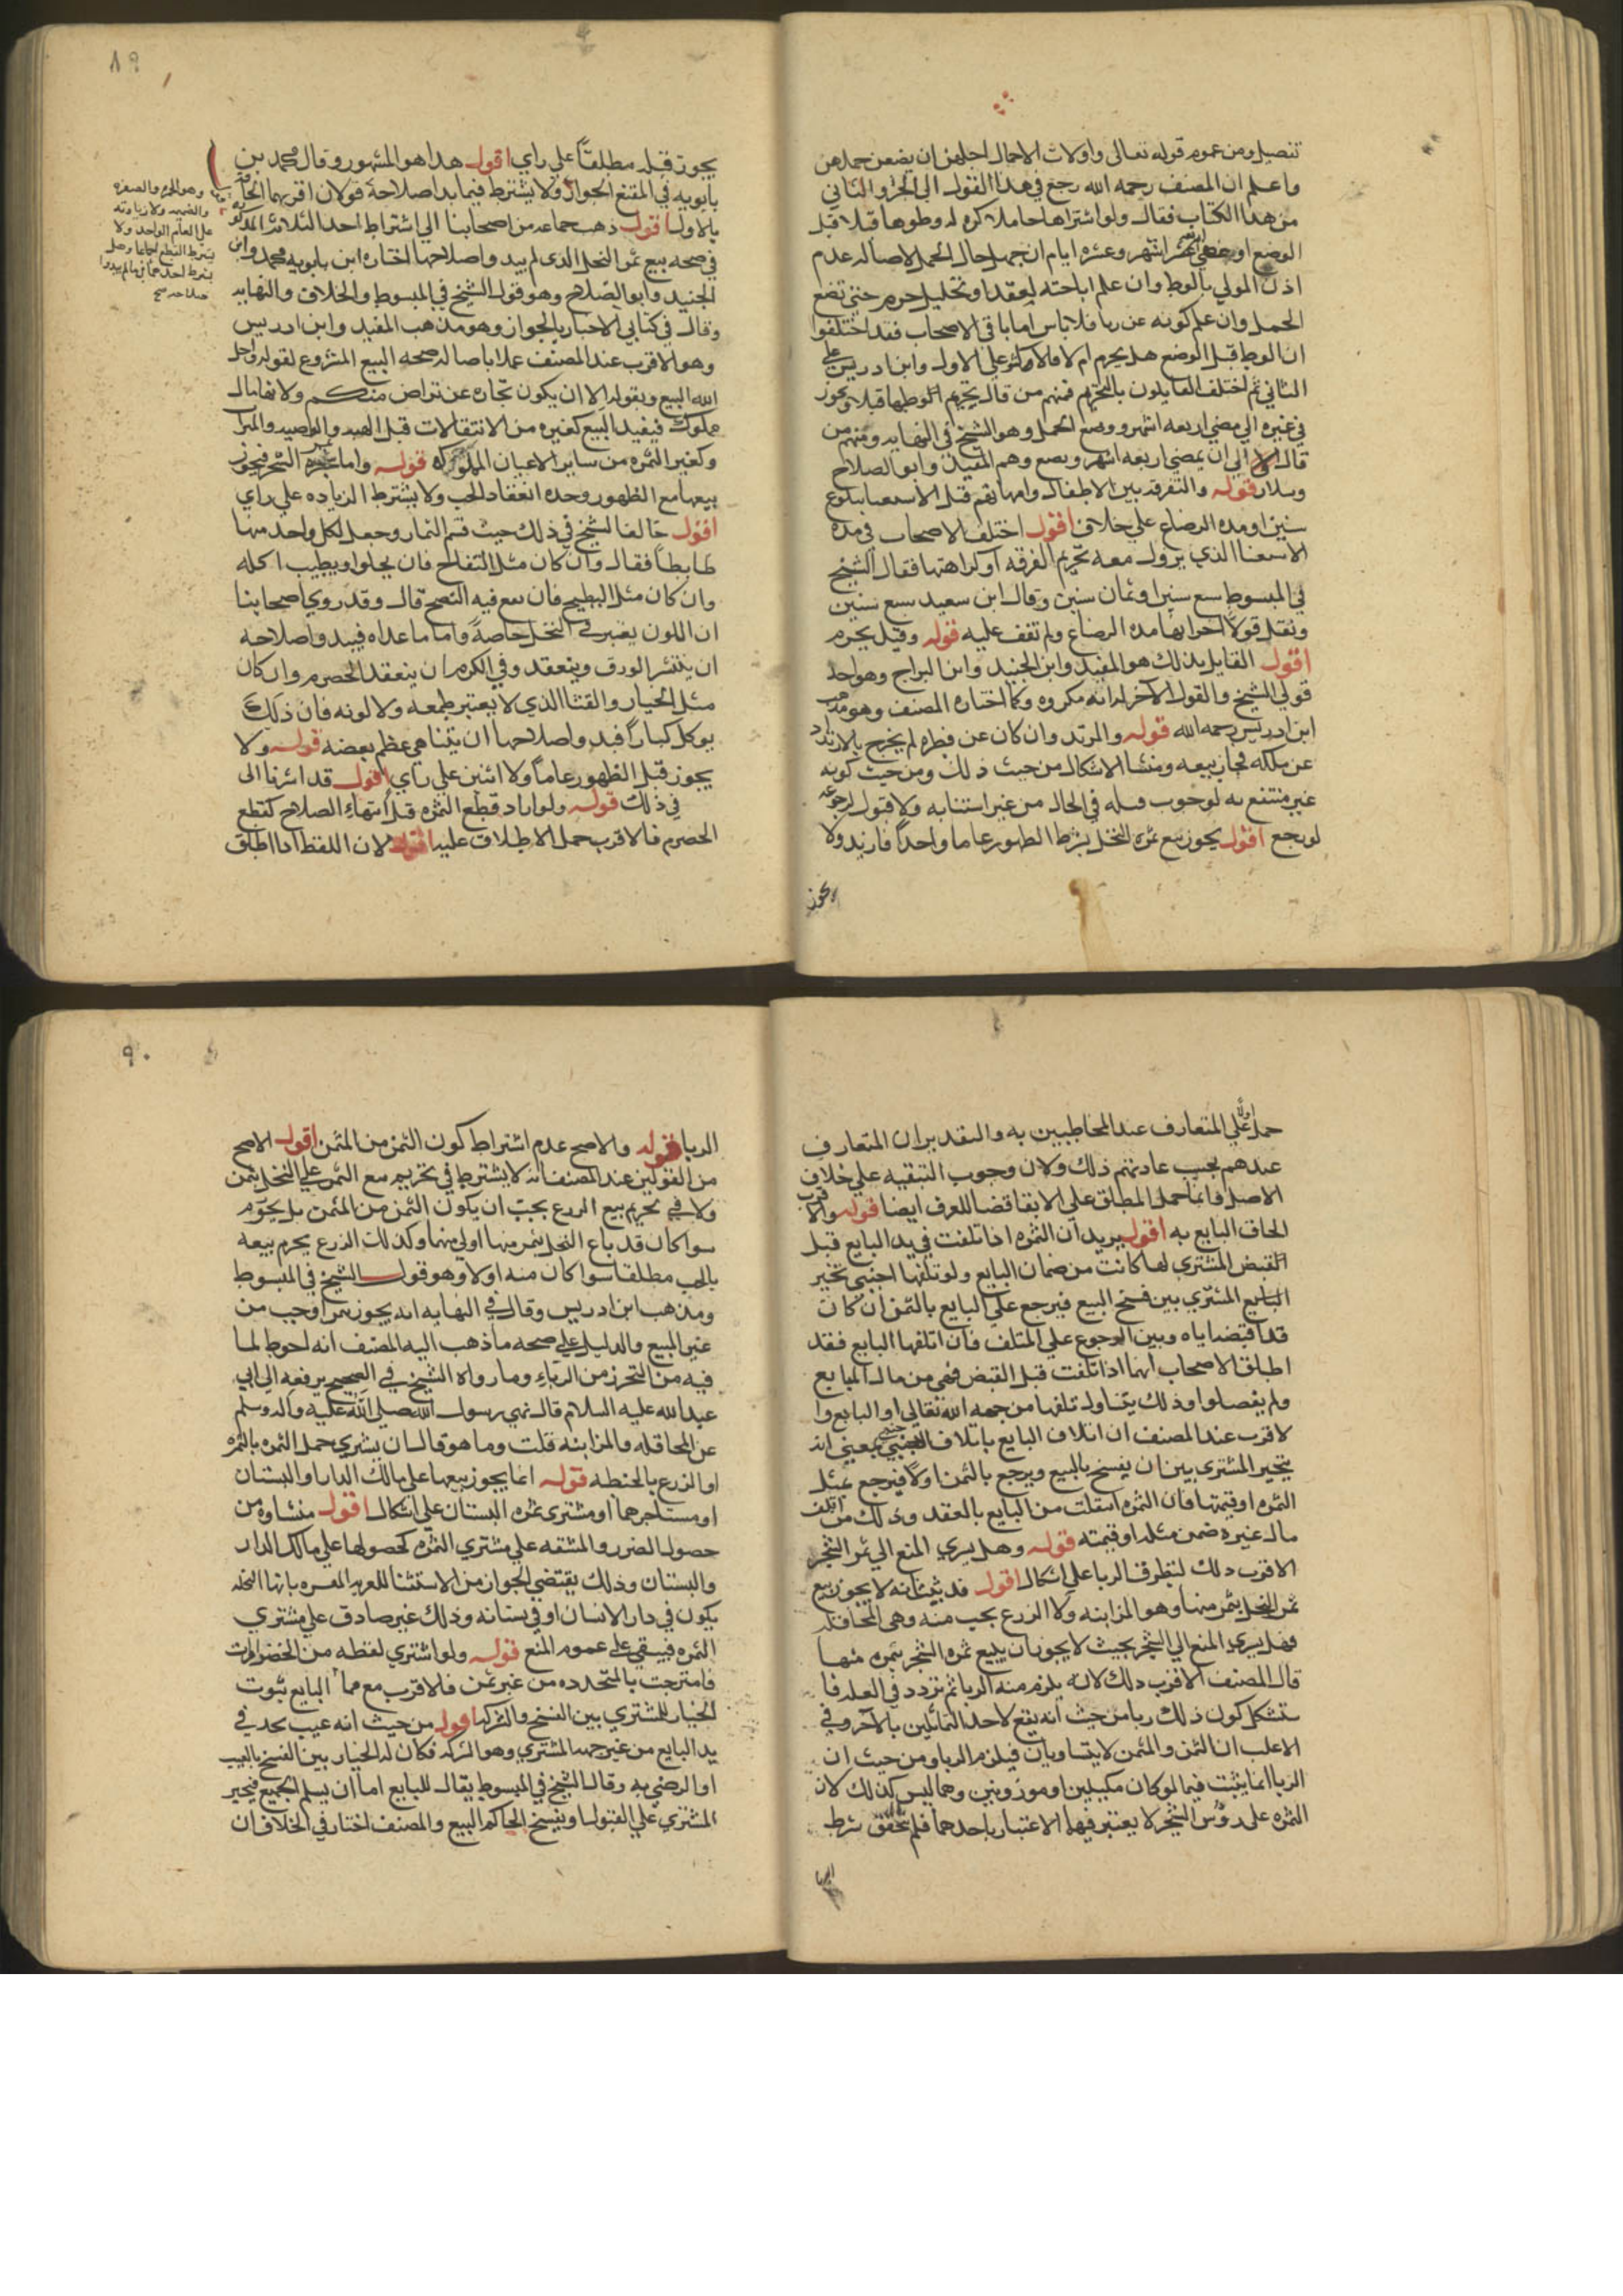 تفصيل ومن عموم قوله تعالى واولات الاحمال اجلهن ان يضعن حملهن
واعلم ان المصنف رحمه الله رجع في هذا القول الى الجزو الثاني
من هذا الكتاب فقال ولو اشتراها حاملا كره له وطوها قبلا قبل
الوضع او مضي اربعة اشهر وعشره ايام ان جهل حال الحمل لاصاله عدم
اذن المولي بالوطو وان علم اباحته لعقد او تحليل حرم حتي تضع
الحمل وان علم كونه عن زنا فلا باس اما باقي الاصحاب فقد اختلفوا
ان الوطو قبل الوضع هل يحرم ام لا فالاكثر علي الاول وابن ادريس علي
الثاني ثم اختلف القايلون بالتحريم فمنهم من قال بتحريم الوطو قبلا ويجوز
في غيره الي مضي اربعه اشهر ووضع الحمل وهو الشيخ في النهايه ومنهم من
قال الي ان يمضي اربعه اشهر وبضع وهم المفيد وابو الصلاح
وسلار قوله والتفرقه بين الاطفال وامهاتهم قبل الاستغنا ببلوغ
سنين او مدة الرضاع علي خلاف اقول اختلف الاصحاب في مدة
الاستغنا الذي يزول معه تحريم الفرقه او كراهتها فقال الشيخ
في المبسوط سبع سنين او ثمان سنين وقال ابن سعيد سبع سنين
ونقل قولا اخر انها مدة الرضاع ولم نقف عليه قوله وقيل يحرم
اقول القايل بذلك هو المفيد وابن الجنيد وابن البراج وهو احد
قولي الشيخ والقول الآخر له انه مكروه وكما اختاره المصنف وهو مذهب
ابن ادريس رحمه الله قوله والمرتد وان كان عن فطره لم يخرج بالارتداد
عن ملكه فجاز بيعه ومنشا الاشكال من حيث ذلك ومن حيث كونه
غير منتفع به لوجوب قتله في الحال من غير استتابه ولا قبول لرجوعه
لو رجع اقول يجوز بيع ثمره النخل بشرط الظهور عاما واحدا فازيد ولا
يجوز
٨٩
يجوز قبله مطلقا علي راي اقول هذا هو المشهور وقال محمد بن
بابويه في المقنع الجواز ولا يشترط فيما بدا صلاحه قولان اقربهما الحاقه
بالاول اقول ذهب جماعه من اصحابنا الي اشتراط احد الثلاثه المذكوره
في صحه بيع ثمر النخل الذي لم يبد واصلاحها اختاره ابن بابويه محمد وابن
الجنيد وابو الصلاح وهو قول الشيخ في المبسوط والخلاف والنهايه
وقال في كتابي الاخبار بالجواز وهو مذهب المفيد وابن ادريس
وهو الاقرب عند المصنف عملا باصاله صحه البيع المشروع لقوله واحل
الله البيع وبقوله الا ان يكون تجاره عن تراض منكم ولانها مال
مملوك فيفيد البيع كغيره من الانتقالات قبل الهبه والوصيه والميراث
وكغير الثمره من ساير الاعيان المملوكه قوله واما ثمره الشجر فيجوز
بيعها مع الظهور وحده انعقاد الحب ولا يشترط الزياده علي راي
اقول خالفنا الشيخ في ذلك حيث قسم الثمار وجعل لكل واحد منها
ضابطا فقال وان كان مثل التفاح فان يحلوا ويطيب اكله
وان كان مثل البطيخ فان يقع فيه النضج قال وقد روي اصحابنا
ان اللون يعتبر في النخل خاصة واما ما عداه فيبد واصلاحه
ان ينتثر الورق وينعقد وفي الكرم ان ينعقد الحصرم وان كان
مثل الخيار والقثا الذي لا يعتبر طعمه ولا لونه فان ذلك
يوكل كبارا فيبد واصلاحها ان يتناهي عظم بعضه قوله ولا
يجوز قبل الظهور عاما ولا اثنين علي راي اقول قد اشرنا الى
في ذلك قوله ولو اراد قطع الثمره قبل انتهاء الصلاح كقطع
الحصرم فالاقرب حمل الاطلاق عليه اقول لان اللفظ اذا اطلق
وهو الحمره والصفره
ولا زيادته
علي العام الواحد ولا
يشترط القطع اجماعا وهل
يشترط احدهما فيما لم يبدوا
صلاحه صح
حمل علي المتعارف عند المخاطبين به والتقدير ان المتعارف
عندهم بحسب عادتهم ذلك ولان وجوب التبقيه علي خلاف
الاصل وانما حمل المطلق علي الابقا قضا للعرف ايضا قوله والاقرب
الحاق البايع به اقول يريد ان الثمره اذا تلفت في يد البايع قبل
القبض المشتري لها كانت من ضمان البايع ولو تلفها اجنبي تخير
البايع المشتري بين فسخ البيع فيرجع علي البايع بالثمن ان كان
قد اقبضه اياه وبين الرجوع علي المتلف فان اتلفها البايع فقد
اطلق الاصحاب انها اذا تلفت قبل القبض فهي من مال البايع
ولم يفصلوا وذلك يتناول تلفها من جهه الله تعالى او البايع وا
لاقرب عند المصنف ان اتلاف البايع باتلاف الاجنبي بمعني انه
يتخير المشتري بين ان يفسخ بالبيع ويرجع بالثمن او لا فيرجع بمثل
الثمره او قيمتها فان الثمره انتقلت من البايع بالعقد وذلك من اتلف
مال غيره ضمن مثله او قيمته قوله وهل يسري المنع الي ثمر الشجر
الاقرب ذلك لتطرق الربا علي اشكال اقول قد ثبت انه لا يجوز بيع
ثمر النخل بثمر منها وهو المزابنه ولا الزرع بحب منه وهي المحاقله
وهل يسري المنع الي الشجر بحيث لا يجوز ان يبيع ثمره الشجر بثمره منها
قال المصنف الاقرب ذلك لانه يلزم منه الربا ثم تردد في العله فا
ستشكل كون ذلك ربا من حيث انه بيع لاحد المتماثلين بالآخر وفي
الاغلب ان الثمن والمثمن لا يتساويان فيلزم الربا ومن حيث ان
الربا انما يثبت فيما لو كان مكيلين او موزونين وهما ليس كذلك لان
الثمره على رؤس الشجر لا يعتبر فيها الاعتبار باحدهما فلم يتحقق شرط
الربا
٩٠
الربا قوله والاصح عدم اشتراط كون الثمن من المثمن اقول الاصح
من القولين عند المصنف انه لا يشترط في تحريم بيع الثمر علي النخل بثمن
ولا في تحريم بيع الزرع بحب ان يكون الثمن من المثمن بل يحرم
سوا كان قد باع النخل بثمر منها او لي منها وكذلك الزرع يحرم بيعه
بالحب مطلقا سوا كان منه او لا وهو قول الشيخ في المبسوط
ومذهب ابن ادريس وقال في النهايه انه يجوز بثمر او حب من
غير المبيع والدليل علي صحه ما ذهب اليه المصنف انه احوط لما
فيه من التحرز من الرباء وما رواه الشيخ في الصحيح يرفعه الى ابي
عبد الله عليه السلام قال نهي رسول الله صلى الله عليه وآله وسلم
عن المحاقله والمزابنه قلت وما هو قال ان يشتري حمل الثمره بالثمره
او الزرع بالحنطه قوله انما يجوز بيعها علي مالك الدار او البستان
او مستاجرهما او مشتري ثمره البستان علي اشكال اقول منشاوه من
حصول الضرر والمشقه علي مشتري الثمره كحصولها علي مالك الدار
والبستان وذلك يقتضي الجواز من الاستثنا للعريه المفسره بانها النخله
يكون في دار الانسان او في بستانه وذلك غير صادق علي مشتري
الثمره فيبقي علي عموم المنع قوله ولو اشتري لقطه من الخضراوات
فامتزجت بالمتجدده من غير تميز فالاقرب مع مما البايع ثبوت
الخيار للمشتري بين الفسخ والشركه اقول من حيث انه عيب تجدد في
يد البايع من غير جهه المشتري وهو الشركه فكان له الخيار بين الفسخ بالعيب
او الرضي به وقال الشيخ في المبسوط يقال للبايع اما ان يسلم الجميع فيجبر
المشتري علي القبول او يفسخ الحاكم البيع والمصنف اختار في الخلاف ان